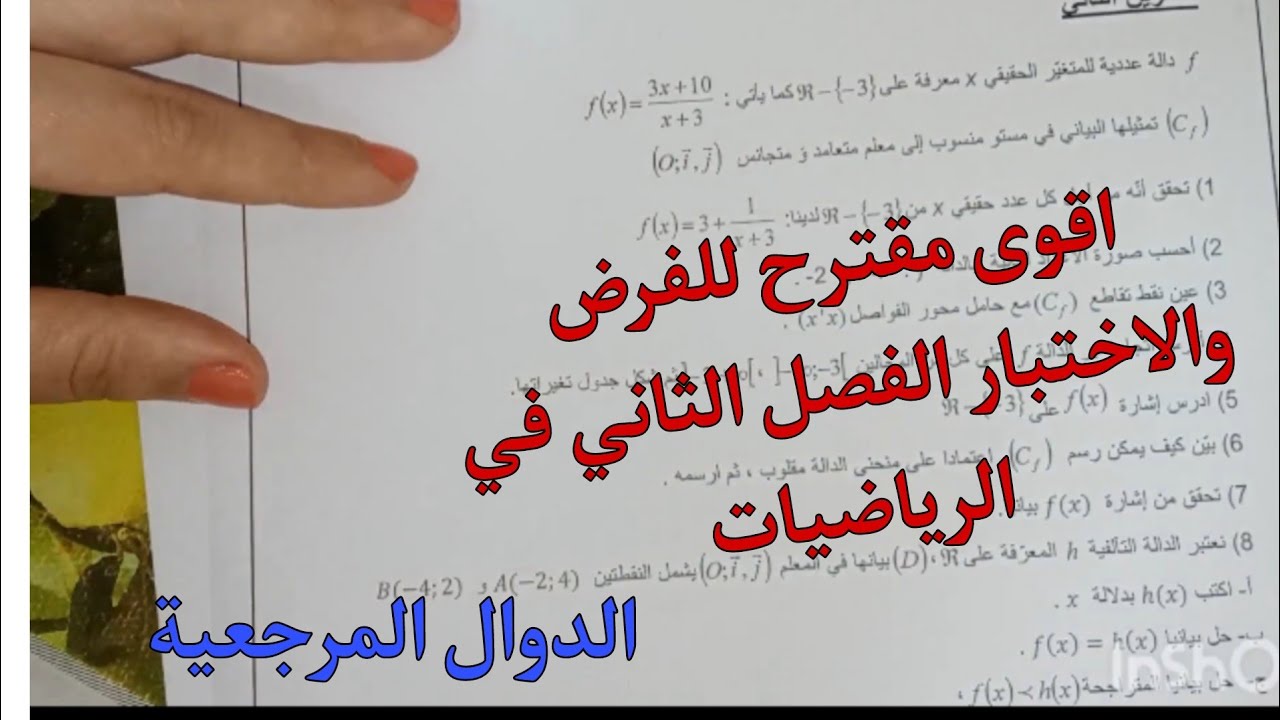 f دالة عددية للمتغيّر الحقيقي x معرفة على ℜ−{−3} كما يأتي : f(x)=(3x+10)/(x+3)
(C_f) تمثيلها البياني في مستو منسوب إلى معلم متعامد و متجانس (O;i⃗,j⃗)
1) تحقق أنّه كل عدد حقيقي x من ℜ−{−3} لدينا: f(x)=3+1/(x+3)
2) أحسب صورة -2 .
3) عين نقط تقاطع (C_f) مع حامل محور الفواصل (x'x) .
الدالة f على كل ثم شكل جدول تغيراتها.
5) ادرس إشارة f(x) على ℜ−{−3}
6) بيّن كيف يمكن رسم (C_f) اعتمادا على منحني الدالة مقلوب ، ثم ارسمه .
7) تحقق من إشارة f(x) بيانيا.
8) نعتبر الدالة التآلفية h المعرّفة على ℜ، (D) بيانها في المعلم (O;i⃗,j⃗) يشمل النقطتين A(−2;4) و B(−4;2)
أ- اكتب h(x) بدلالة x .
ب- حل بيانيا f(x) = h(x) .
ج- حل بيانيا المتراجحة f(x)≺h(x) ،
اقوى مقترح للفرض
والاختبار الفصل الثاني في
الرياضيات
الدوال المرجعية
InShO